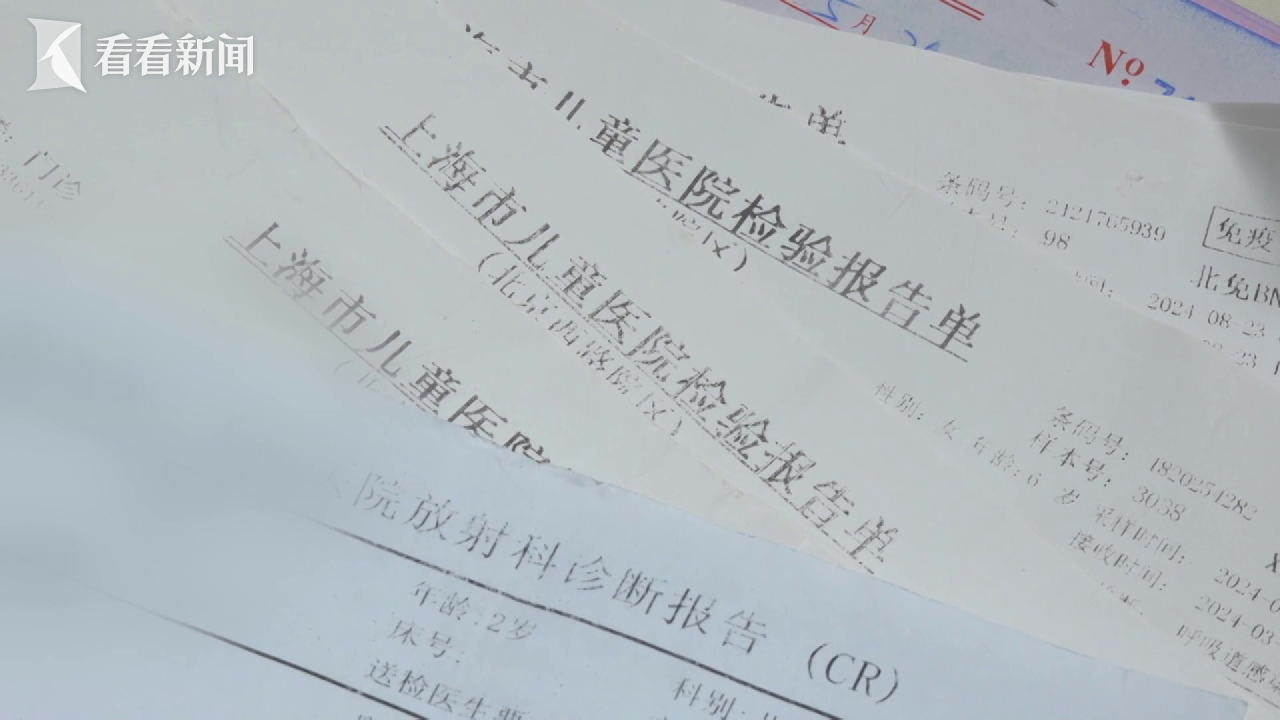 看看新闻
5月
No
单
门诊
童医院检验报告单
院区)
条码号: 2121765939
98
免疫
北免BN
2024-08-23
上海市儿童医院检验报告单
(北京西路院区)
性别: 女 年龄: 6 岁
条码号: 4820254282
样本号: 3038
采样时间: 2024-0
接收时间: 2024-03-
呼吸道感
上海市儿童医院
院放射科诊断报告 (CR)
年龄: 2岁
床号:
科别:
送检医生